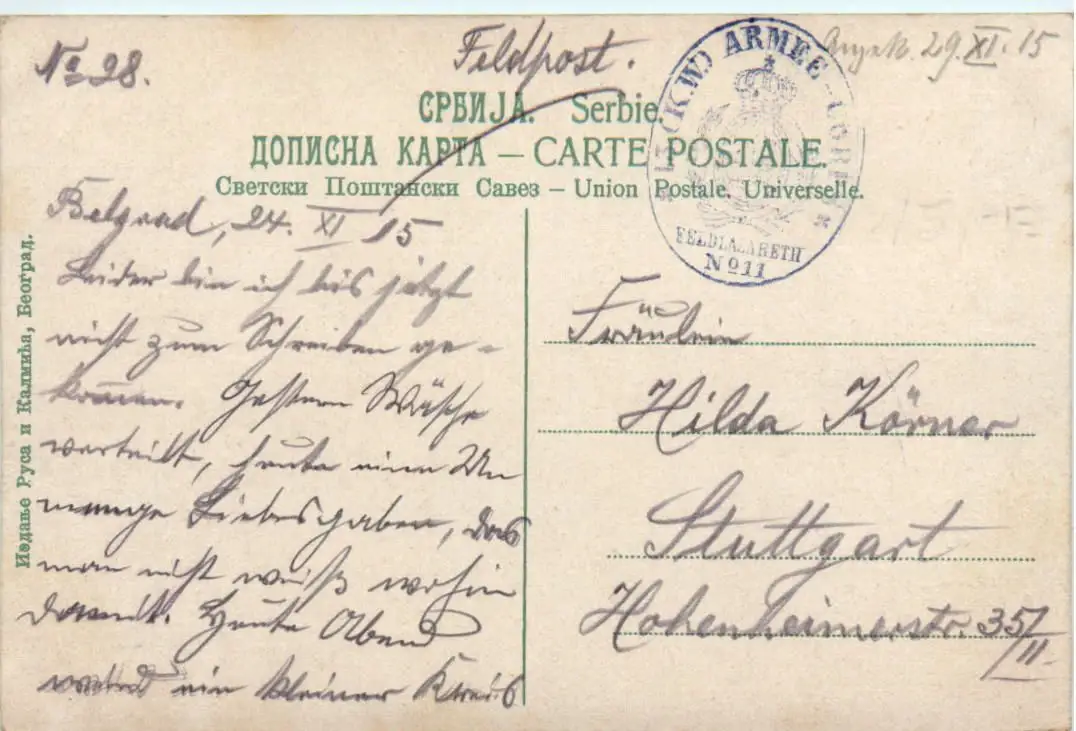 No 28.
Feldpost.
29. XI. 15
СРБИЈА. Serbie.
ДОПИСНА КАРТА – CARTE POSTALE.
Светски Поштански Савез – Union Postale Universelle.
XIII (K.W.) ARMEE-CORPS
FELDLAZARETH
No 11
Belgrad, 24. XI 15
Leider bin ich bis jetzt
nicht zum Schreiben ge-
kommen. Gestern Wäsche
verteilt, heute eine Un
menge Liebesgaben, das
man nicht weiß wohin
damit. Heute Abend
wird ein kleiner Kreis
Fräulein
Hilda Körner
Stuttgart
Hohenheimerstr. 35/
II.
Издање Руса и Калмића, Београд.